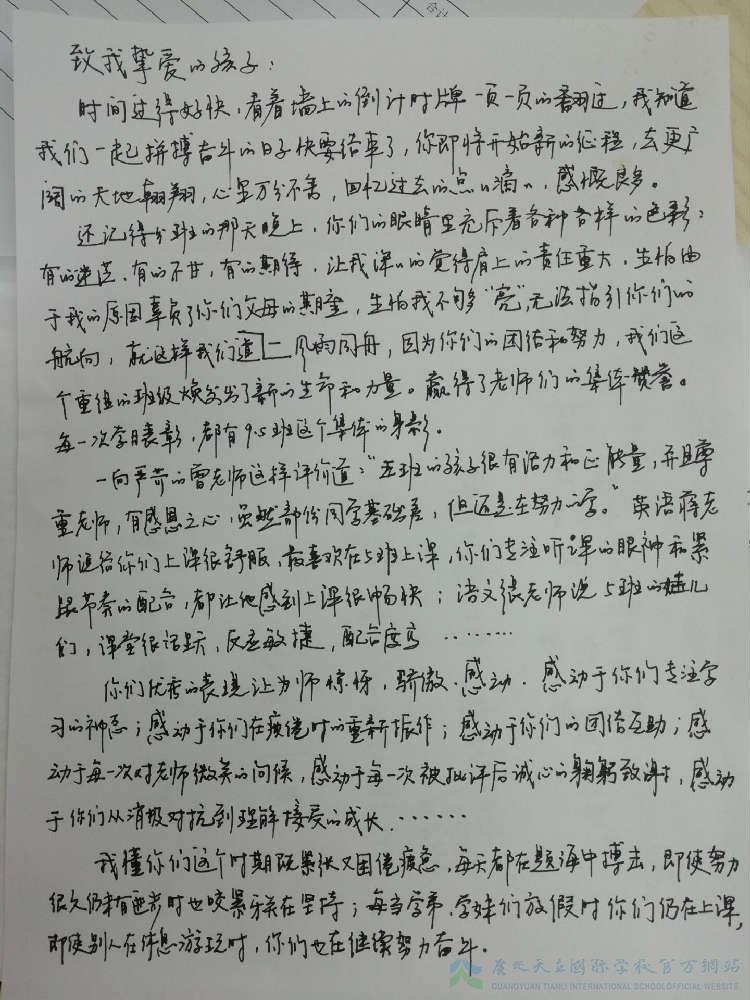 致我挚爱的孩子：
时间过得好快，看着墙上的倒计时牌一页一页的翻过，我知道
我们一起拼搏奋斗的日子快要结束了，你即将开始新的征程，去更广
阔的天地翱翔，心里万分不舍，回忆过去的点点滴滴，感慨良多。
还记得分班的那天晚上，你们的眼睛里充斥着各种各样的色彩：
有的迷茫、有的不甘，有的期待，让我深深的觉得肩上的责任重大，生怕由
于我的原因辜负了你们父母的期望，生怕我不够多“亮”，无法指引你们的
航向，就这样我们道 一风雨同舟，因为你们的团结和努力，我们这
个重组的班级焕发出了新的生命和力量。赢得了老师们的集体赞誉。
每一次学月表彰，都有9.5班这个集体的身影。
一向严苛的雷老师这样评价道：“五班的孩子很有活力和正能量，并且尊
重老师，有感恩之心，虽然部份同学基础差，但还是在努力学。”英语蒋老
师说给你们上课很舒服，最喜欢在5班上课，你们专注听课的眼神和紧
跟节奏的配合，都让他感到上课很畅快；语文张老师说5班的娃儿
们，课堂很活跃，反应敏捷，配合度高………
你们优秀的表现让为师惊讶，骄傲、感动．感动于你们专注学
习的神态；感动于你们在疲倦时的重新振作；感动于你们的团结互助；感
动于每一次对老师微笑的问候，感动于每一次被批评后诚心的鞠躬致谢，感动
于你们从消极对抗到理解接受的成长．……
我懂你们这个时期既紧张又困倦疲惫，每天都在题海中搏击，即使努力
很久仍未有进步时也咬紧牙关在坚持；每当学弟、学妹们放假时你们仍在上课，
即使别人在休息游玩时，你们也在继续努力奋斗．
广元天立国际学校官方网站
GUANGYUAN TIANLI INTERNATIONAL SCHOOL OFFICIAL WEBSITE